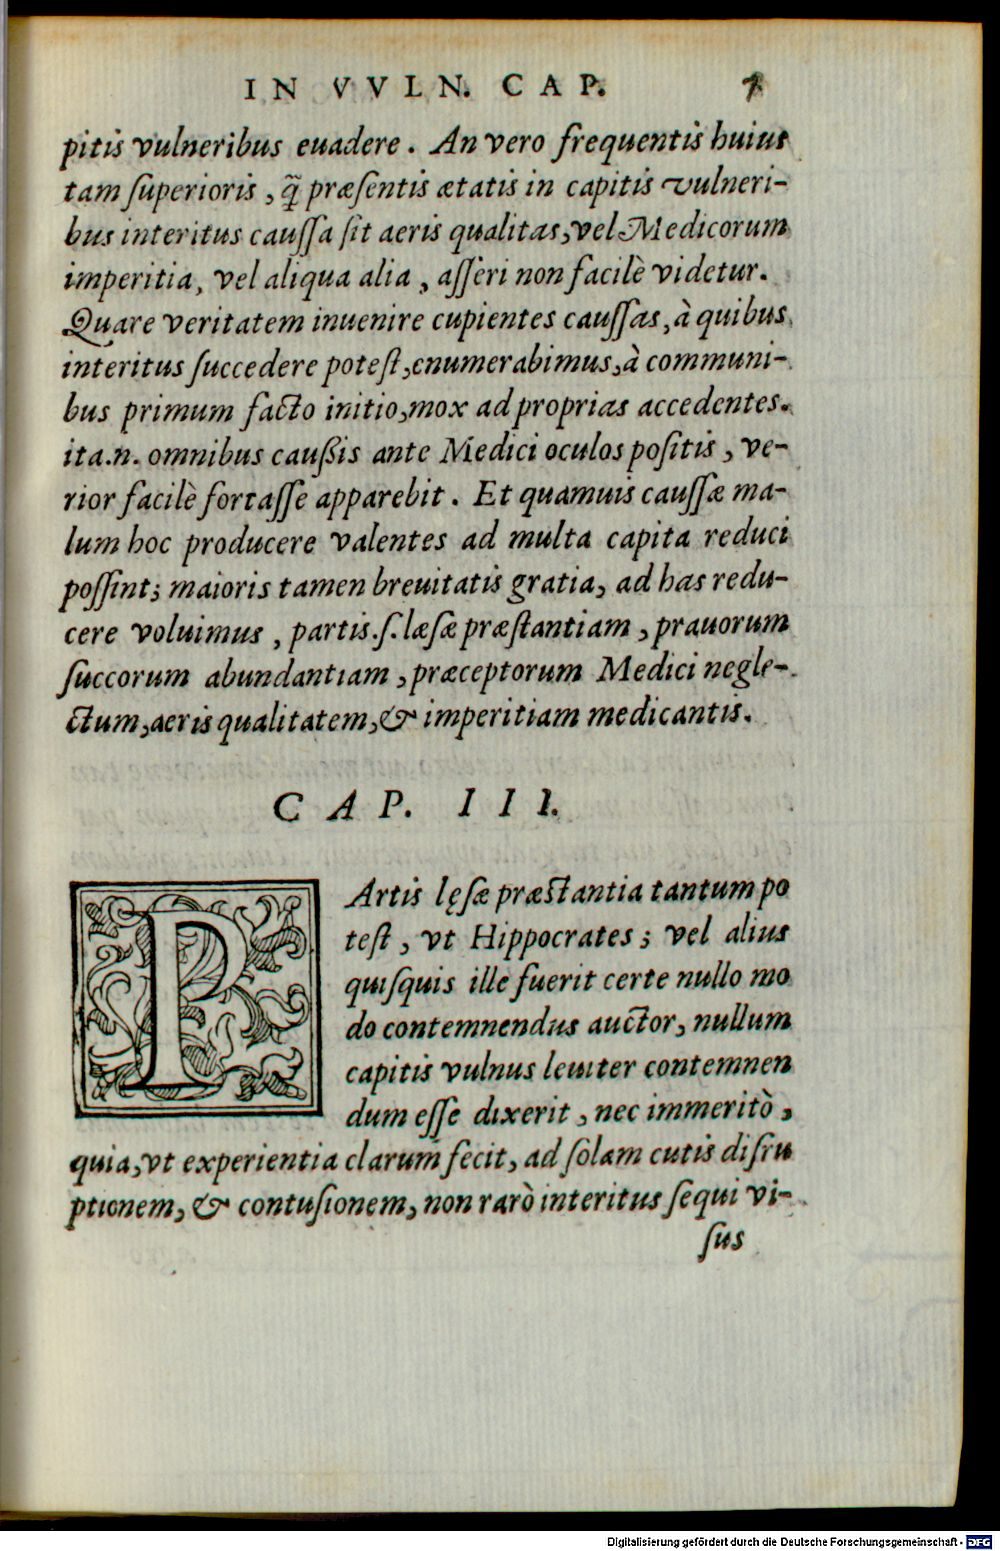 IN VVLN. CAP. 7
pitis vulneribus euadere. An vero frequentis huius
tam superioris, q̃ præsentis ætatis in capitis vulneri-
bus interitus caussa sit aeris qualitas, vel Medicorum
imperitia, vel aliqua alia, asseri non facilè videtur.
Quare veritatem inuenire cupientes caussas, à quibus
interitus succedere potest, enumerabimus, à communi-
bus primum facto initio, mox ad proprias accedentes.
ita.n. omnibus caußis ante Medici oculos positis, ve-
rior facilè fortasse apparebit. Et quamuis caussæ ma-
lum hoc producere valentes ad multa capita reduci
possint; maioris tamen breuitatis gratia, ad has redu-
cere voluimus, partis.s. læsæ præstantiam, prauorum
succorum abundantiam, præceptorum Medici negle-
ctum, aeris qualitatem, & imperitiam medicantis.
CAP. III.
PArtis lęsæ præstantia tantum po
test, vt Hippocrates; vel alius
quisquis ille fuerit certe nullo mo
do contemnendus auctor, nullum
capitis vulnus leuiter contemnen
dum esse dixerit, nec immeritò,
quia, vt experientia clarum fecit, ad solam cutis disru
ptionem, & contusionem, non rarò interitus sequi vi-
sus
Digitalisierung gefördert durch die Deutsche Forschungsgemeinschaft - DFG